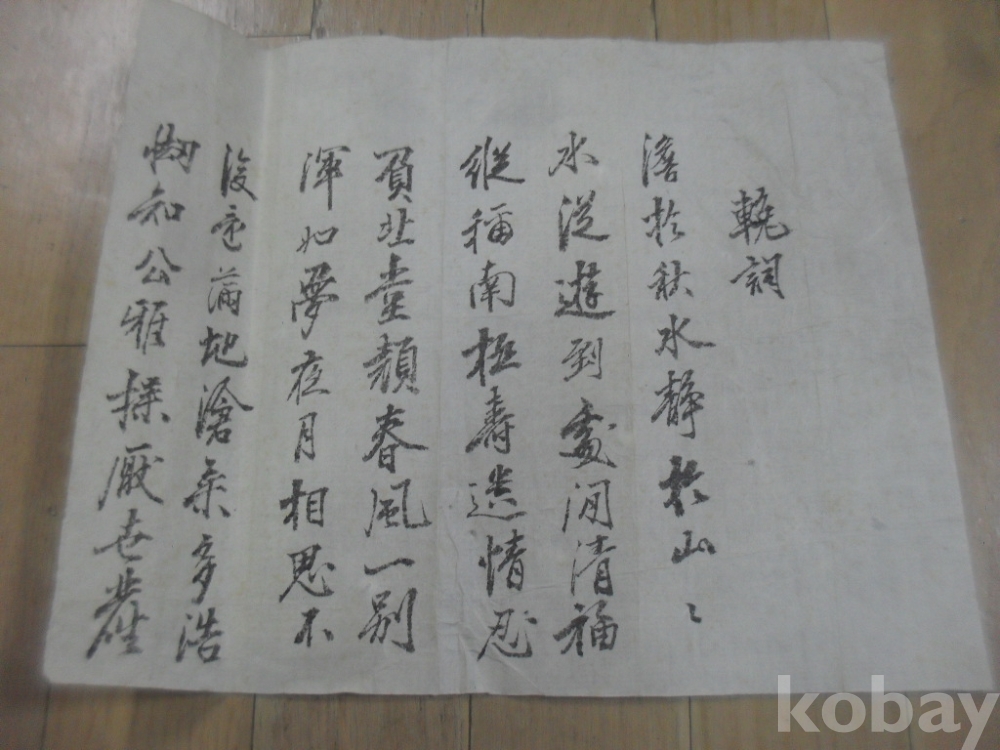 輓詞
澹於秋水靜於山〻
水從遊到處閒清福
縱稱南極壽遺情忍
負北堂顏春風一別
渾如夢夜月相思不
復還滿地滄桑多浩
刼知公雅操厭世塵
kobay